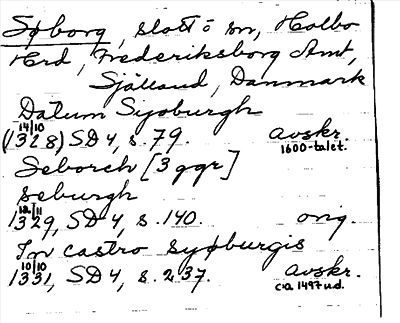 Søborg, slott o sn, Holbo
Hrd, Frederiksborg Amt,
Själland, Danmark
Datum Syoburgh
14/10
(1328) SD 4, s. 79. avskr.
1600-talet.
Seborch [3 ggr]
seburgh
12/11
1329, SD 4, s. 140. orig.
In castro syøburgis
10/10
1331, SD 4, s. 237. avskr.
c:a 1497 ud.